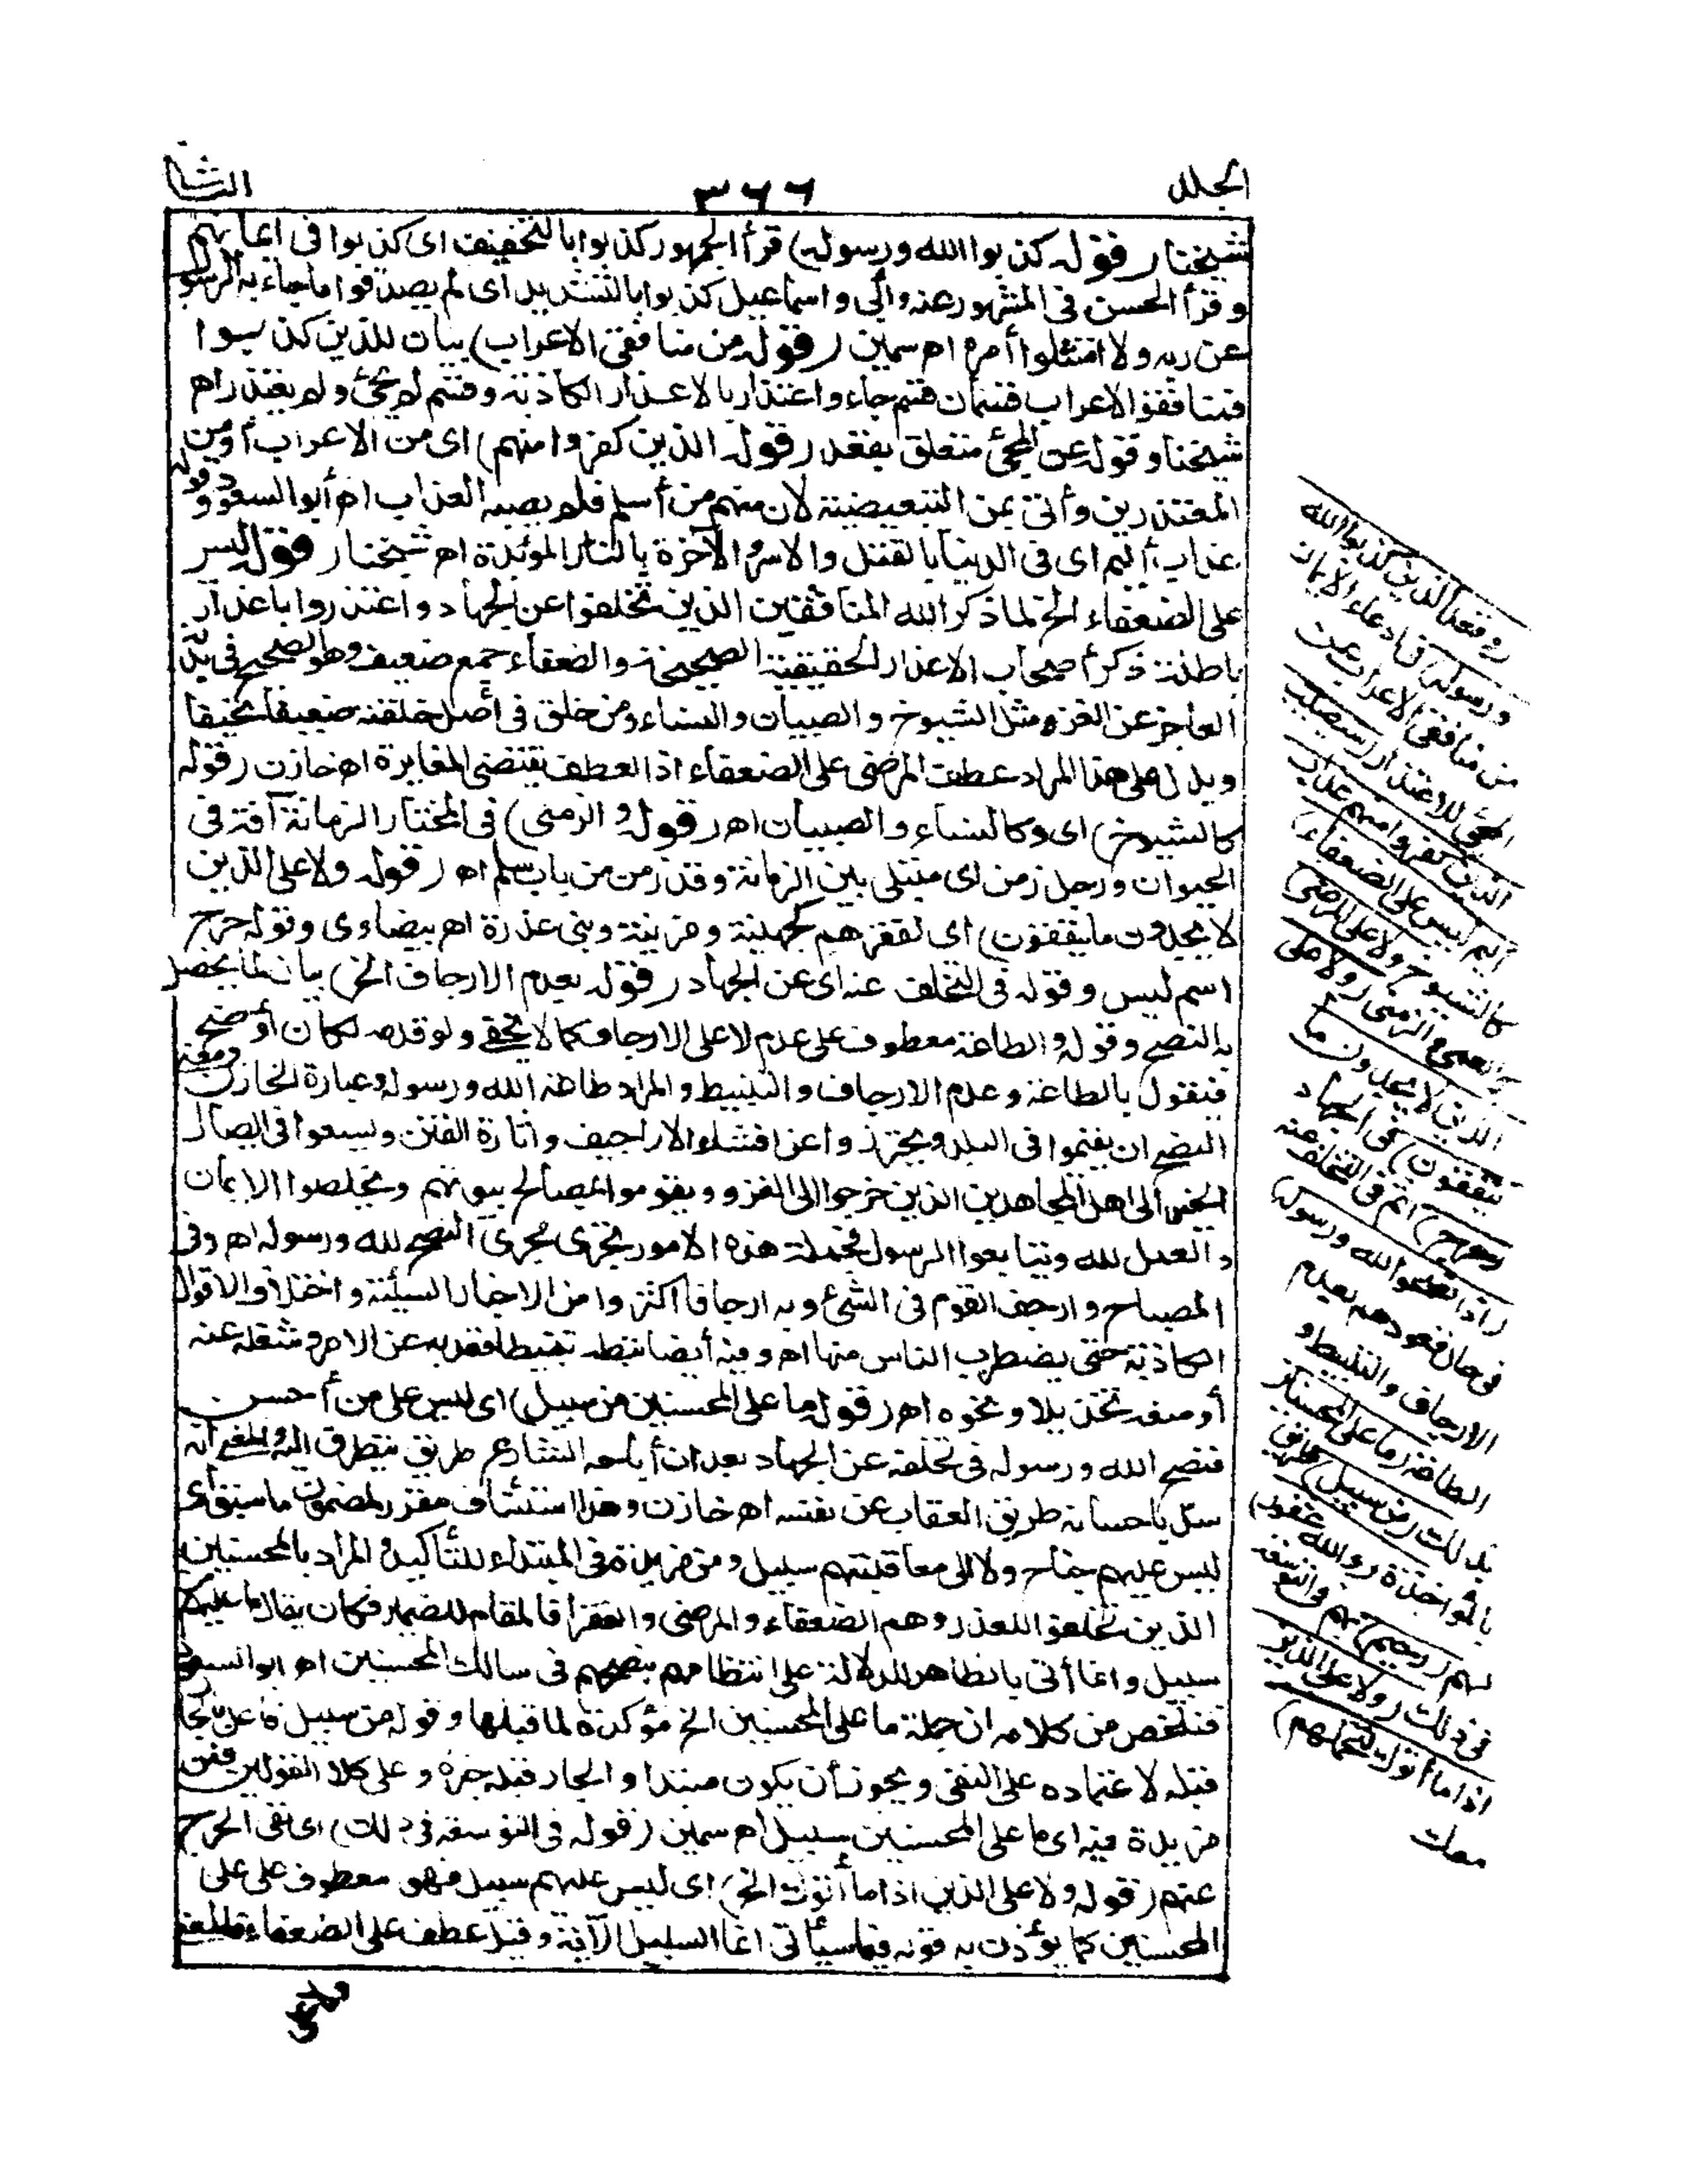 الجلد
٣٦٦
الثا
شيخنا (قوله كذبوا الله ورسوله) قرأ الجمهور كذبوا بالتخفيف اى كذبوا فى ايمانهم
وقرأ الحسن فى المشهور عنه وأبى واسماعيل كذبوا بالتشديد اى لم يصدقوا ما جاء به الرسول
عن ربه ولا امتثلوا أمره اه سمين (قوله من منافقى الاعراب) بيان للذين كذبوا
فمنافقوا الاعراب قسمان قسم جاء واعتذر بالاعذار الكاذبة وقسم لم يجئ ولم يعتذر اه
شيخنا وقوله عن المجئ متعلق بقعد (قوله الذين كفروا منهم) اى من الاعراب أو من
المعتذرين وأتى بمن التبعيضية لان منهم من أسلم فلم يصبه العذاب اه أبوالسعود وقوله
عذاب أليم اى فى الدنيا بالقتل والاسر والآخرة بالنار المؤبدة اه شيخنا (قوله ليس
على الضعفاء الخ) لما ذكر الله المنافقين الذين تخلفوا عن الجهاد واعتذروا باعذار
باطلة ذكر أصحاب الاعذار الحقيقية الصحيحة والضعفاء جمع ضعيف وهو الصحيح فى بدنه
العاجز عن الغزو مثل الشيوخ والصبيان والنساء ومن خلق فى أصل خلقته ضعيفا نحيفا
ويدل على هذا المراد عطف المرضى على الضعفاء اذ العطف يقتضى المغايرة اه خازن (قوله
كالشيوخ) اى وكالنساء والصبيان اه (قوله والزمنى) فى المختار الزمانة آفة فى
الحيوان ورجل زمن اى مبتلى بين الزمانة وقد زمن من باب سلم اه (قوله ولا على الذين
لا يجدون ما ينفقون) اى لفقرهم كجهينة ومزينة وبنى عذرة اه بيضاوى وقوله حرج
اسم ليس وقوله فى التخلف عنه اى عن الجهاد (قوله بعدم الارجاف الخ) بيان لما يحصل
به النصح وقوله والطاعة معطوف على عدم لا على الارجاف كما لا يخفى ولو قدمه لكان أوضح
فيقول بالطاعة وعدم الارجاف والتثبيط والمراد طاعة الله ورسوله وعبارة الخازن ومعنى
النصح ان يقيموا فى البلد ويحترزوا عن افشاء الاراجيف واثارة الفتن ويسعوا فى ايصال
الخير الى اهل المجاهدين الذين خرجوا الى الغزو ويقوموا بمصالح بيوتهم ويخلصوا الايمان
والعمل لله ويتابعوا الرسول فجملة هذه الامور تجرى مجرى النصح لله ورسوله اه وفى
المصباح وارجف القوم فى الشئ وبه ارجافا اكثروا من الاخبار السيئة واختلاق الاقوال
الكاذبة حتى يضطرب الناس منها اه وفيه أيضا ثبطه تثبيطا قعد به عن الامر وشغله عنه
أو منعه تخذيلا ونحوه اه (قوله ما على المحسنين من سبيل) اى ليس على من أحسن
فنصح الله ورسوله فى تخلفه عن الجهاد بعد ان أباحه الشارع طريق يتطرق اليه والمعنى انه
سد باحسانه طريق العقاب عن نفسه اه خازن وهذا استئناف مقرر لمضمون ما سبق اى
ليس عليهم جناح ولا الى معاقبتهم سبيل ومن مزيدة فى المبتداء للتأكيد والمراد بالمحسنين
الذين تخلفوا للعذر وهم الضعفاء والمرضى والفقراء فالمقام للضمير فكان يقال ما عليهم
سبيل وانما أتى بالظاهر للدلالة على انتظامهم بنصحهم فى سلك المحسنين اه ابوالسعود
فتلخص من كلامه ان جملة ما على المحسنين الخ مؤكدة لما قبلها وقوله من سبيل فاعل بالجار
قبله لاعتماده على النفى ويجوز أن يكون مبتدا والجار قبله خبره وعلى كلا القولين فمن
مزيدة فيه اى ما على المحسنين سبيل اه سمين (قوله فى التوسعة فى ذلك) اى نفى الحرج
عنهم (قوله ولا على الذين اذا ما أتوك الخ) اى ليس عليهم سبيل فهو معطوف على على
المحسنين كما يؤذن به قوله فيما سيأتى انما السبيل الآية وقيل عطف على الضعفاء والمعنى
(وقعد الذين كذبوا الله
ورسوله) فى ادعاء الايمان
من منافقى الاعراب عن
المجئ للاعتذار (سيصيب
الذين كفروا منهم عذاب
اليم ليس على الضعفاء)
كالشيوخ (ولا على المرضى)
كالعمى والزمنى (ولا على
الذين لا يجدون ما
ينفقون) فى الجهاد
(حرج) اثم فى التخلف عنه
(اذا نصحوا لله ورسوله)
فى حال قعودهم بعدم
الارجاف والتثبيط و
الطاعة (ما على المحسنين)
بذلك (من سبيل) طريق
بالمؤاخذة (والله غفور)
لهم (رحيم) بهم فى التوسعة
فى ذلك (ولا على الذين
اذا ما أتوك لتحملهم)
معك